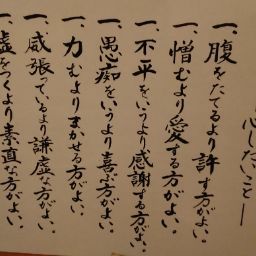 心したいこと―
一、腹をたてるより許す方がよい。
一、憎むより愛する方がよい。
一、不平をいうより感謝する方がよい。
一、愚痴をいうより喜ぶ方がよい。
一、力むよりまかせる方がよい。
一、威張ているより謙虚な方がよい。
嘘をつくより素直な方がよい。